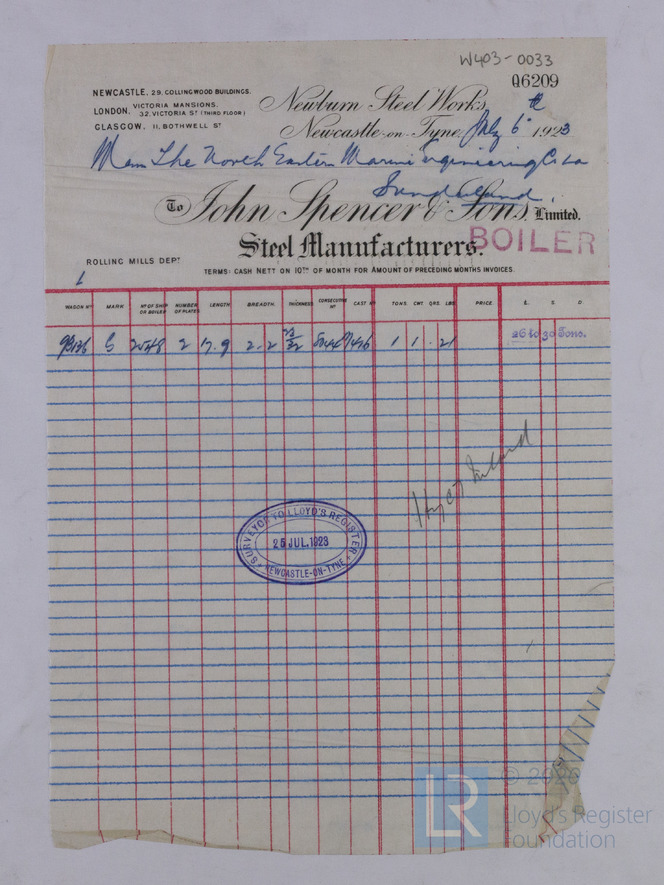 W403-0033
06209
NEWCASTLE. 29. COLLINGWOOD BUILDINGS.
LONDON. VICTORIA MANSIONS. 32, VICTORIA ST (THIRD FLOOR)
GLASGOW. 11, BOTHWELL ST
Newburn Steel Works,
Newcastle-on-Tyne, July 6th 1923
The North Eastern Marine Engineering Co Ld
Sunderland.
To John Spencer & Sons, Limited.
Steel Manufacturers.
BOILER
ROLLING MILLS DEPT
TERMS: CASH NETT ON 10TH OF MONTH FOR AMOUNT OF PRECEDING MONTHS INVOICES.
WAGON No MARK No OF SHIP OR BOILER NUMBER OF PLATES LENGTH BREADTH. THICKNESS CONSECUTIVE No CAST No TONS. CWT. QRS. LBS PRICE. £. S. D.
S 2548 2 17.9 2.2 23/32 1 1 . 21 26 to 30 Tons.
SURVEYOR TO LLOYD'S REGISTER
25 JUL. 1923
NEWCASTLE-ON-TYNE
LR
© 2020
Lloyd's Register
Foundation